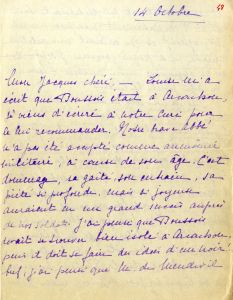 14 Octobre
48
Mon Jacques chéri, — Louise m'a
écrit que Boussois était à Arcachon.
Je viens d'écrire à notre Curé pour
le lui recommander. Notre brave abbé
n'a pas été accepté comme aumônier
militaire, à cause de son âge. C'est
dommage, sa gaîté, son entrain, sa
piété si profonde, mais si joyeuse
auraient eu un grand succès auprès
de nos soldats. J'ai pensé que Boussois
devait se trouver bien isolé à Arcachon,
puis il doit se faire des idées d'un noir!
bref, j'ai pensé que M. de